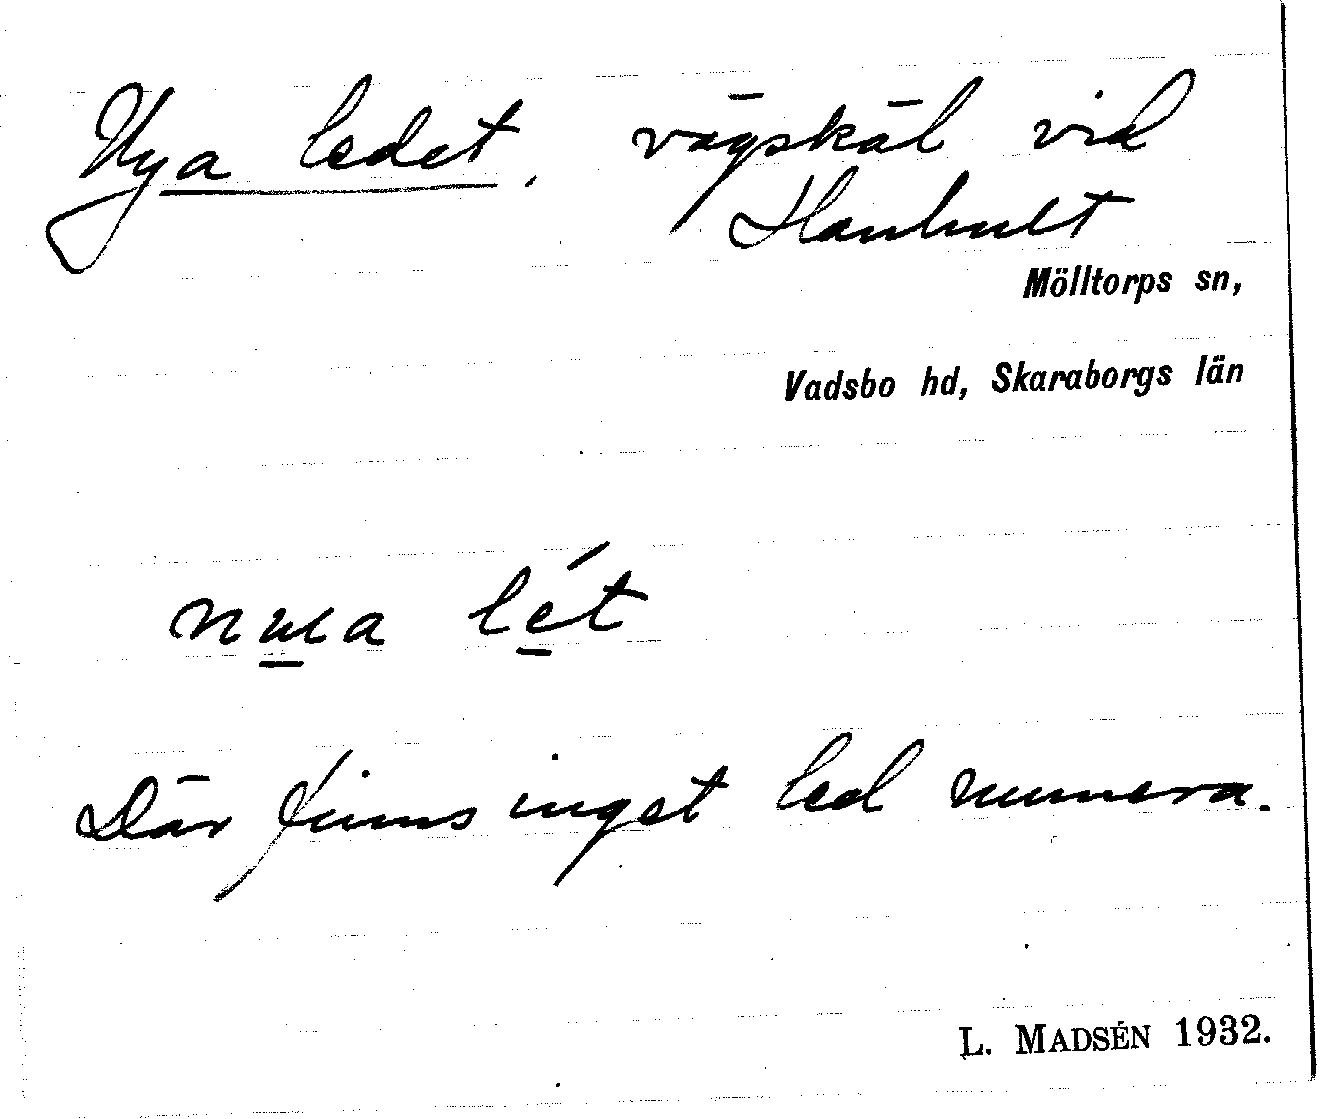 Nya ledet, vägskäl vid
Hanhult
Mölltorps sn,
Vadsbo hd, Skaraborgs län
lét
Där finns inget led numera.
L. MADSÉN 1932.